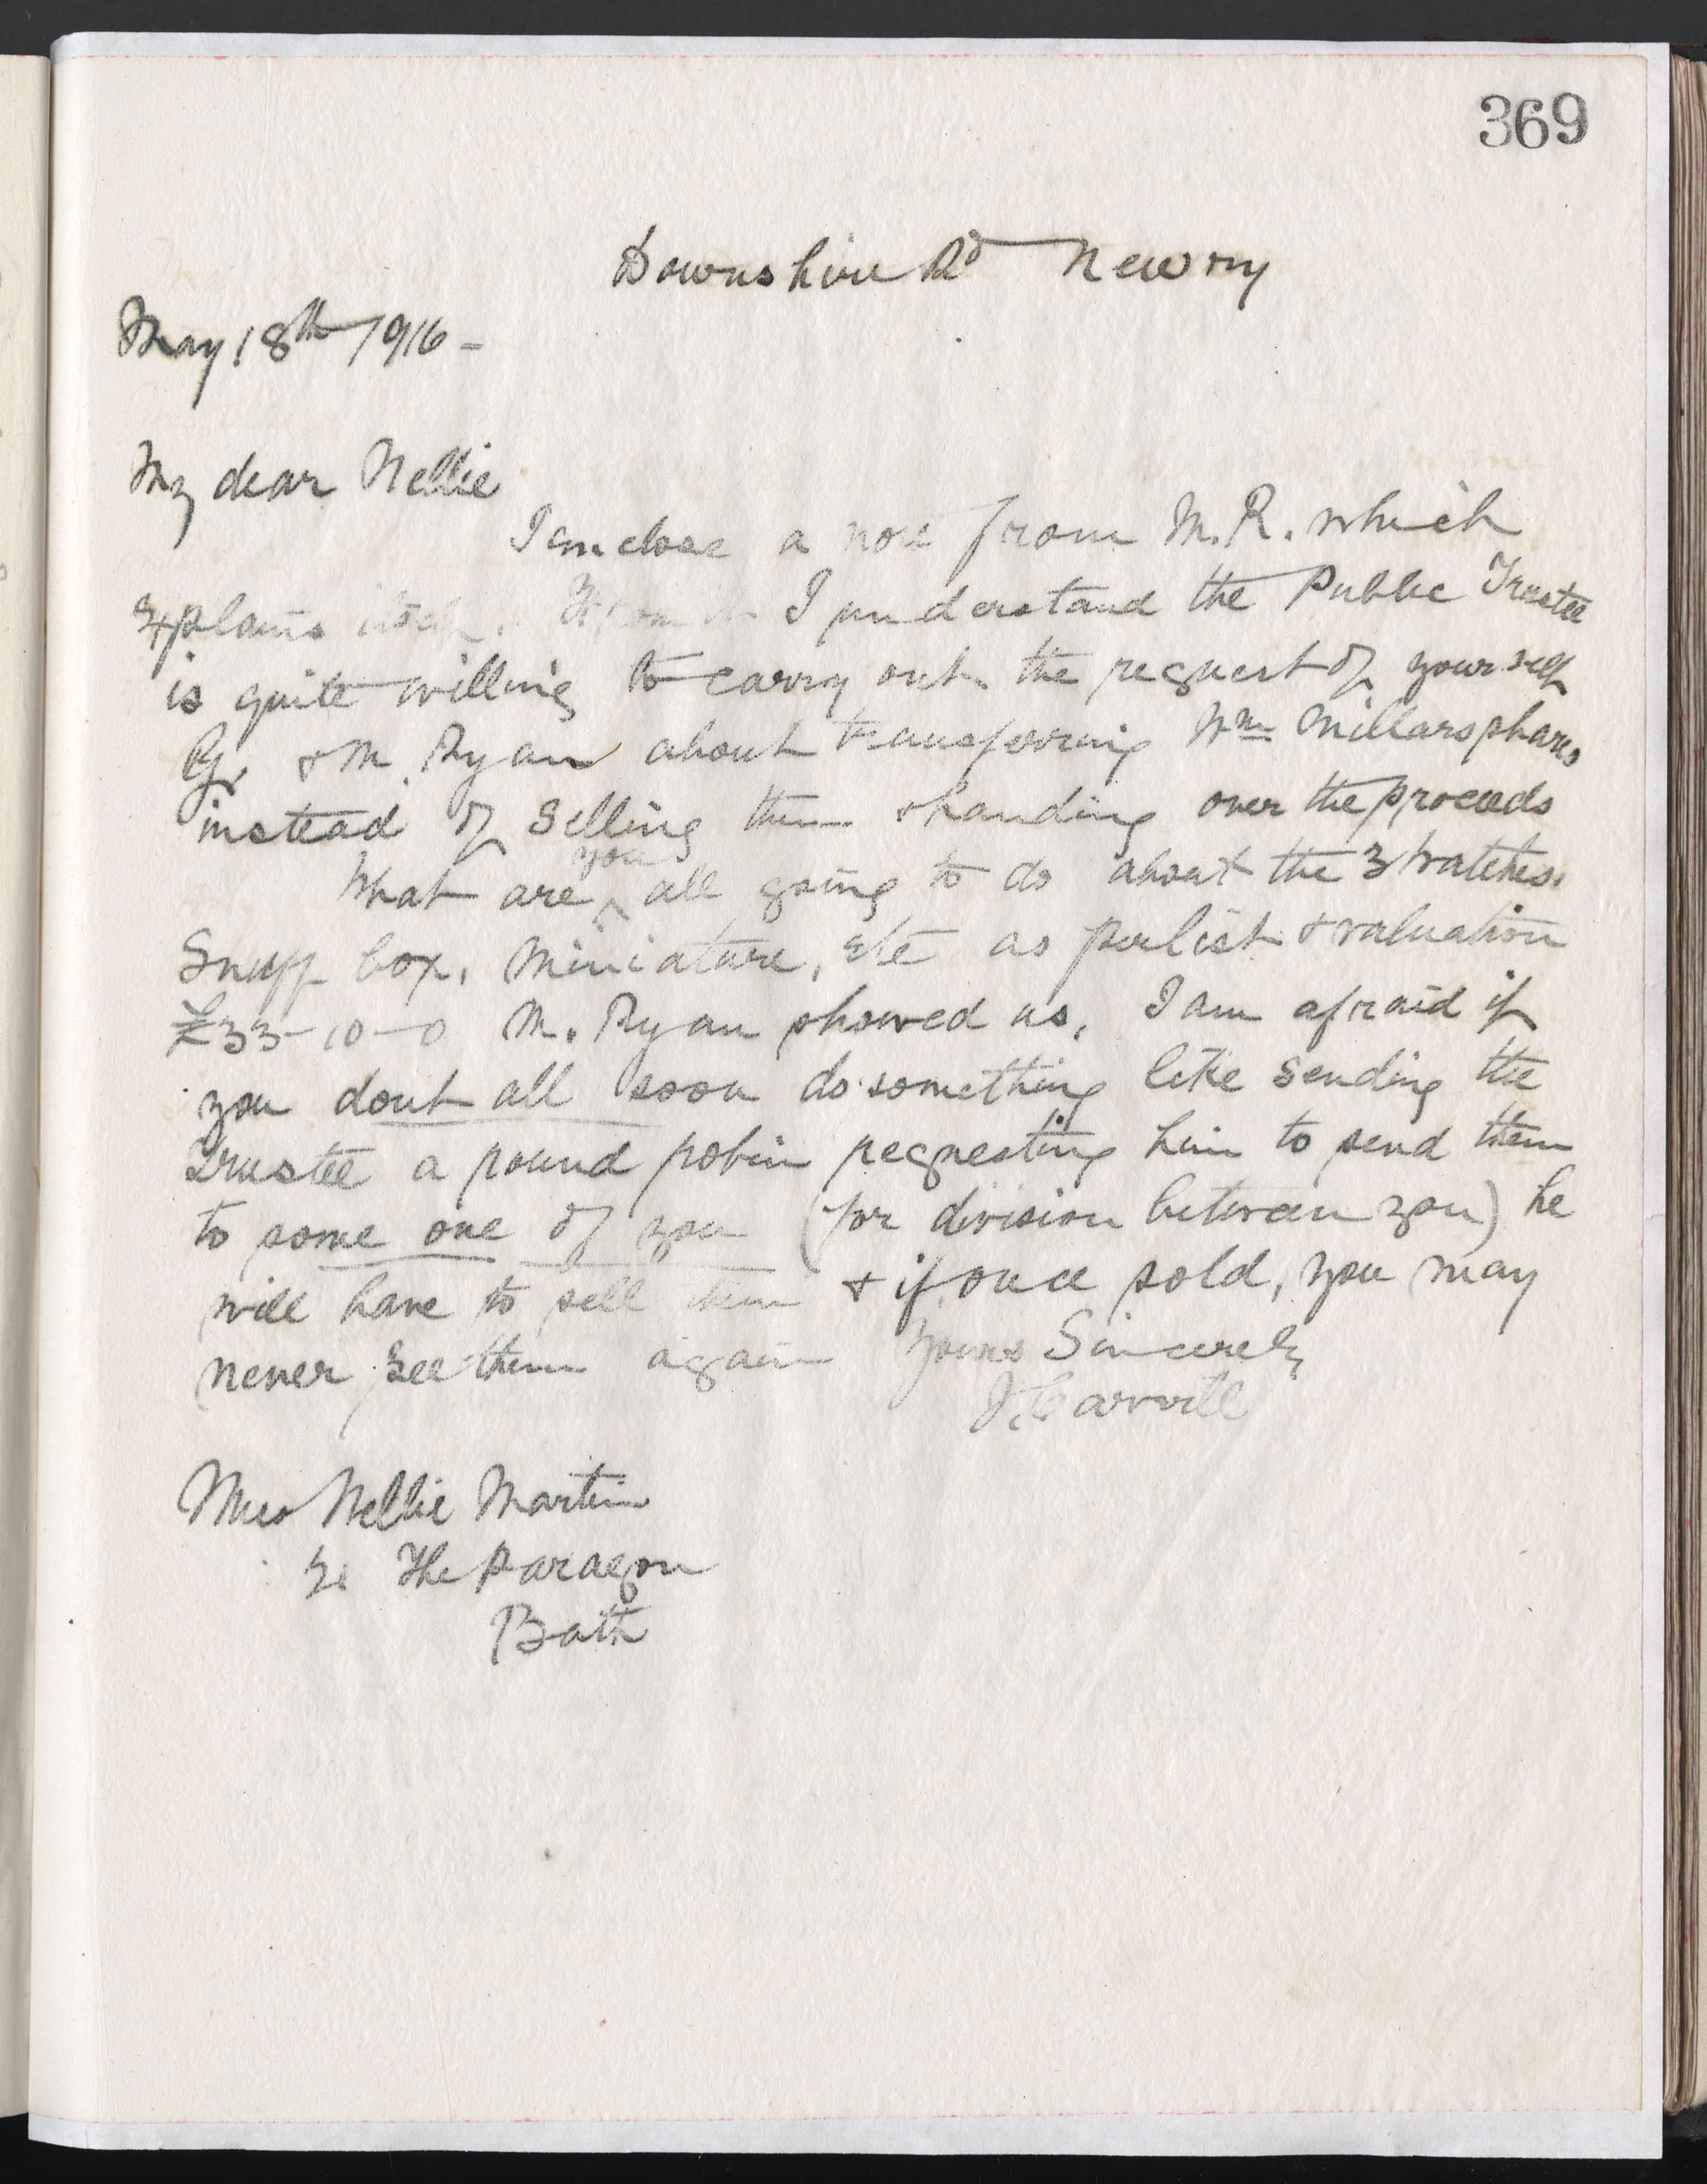 369
Downshire Rd Newry
May 18th 1916 -
My dear Nellie
I enclose a note from M.R. which
explains itself. I understand the Public Trustee
is quite willing to carry out the request of yourself
G. & M. Ryan about transferring Wm Millars shares
instead of selling them & handing over the proceeds
What are you all going to do about the 3 Watches,
Snuff box, Miniature, etc as per list & valuation
£33-10-0 M. Ryan showed us. I am afraid if
you dont all soon do something like sending the
Trustee a round robin requesting him to send them
to some one of you (for division between you) he
will have to sell them & if once sold, you may
never see them again Yours Sincerely
J. Carvill
Miss Nellie Martin
The Paragon
Bath